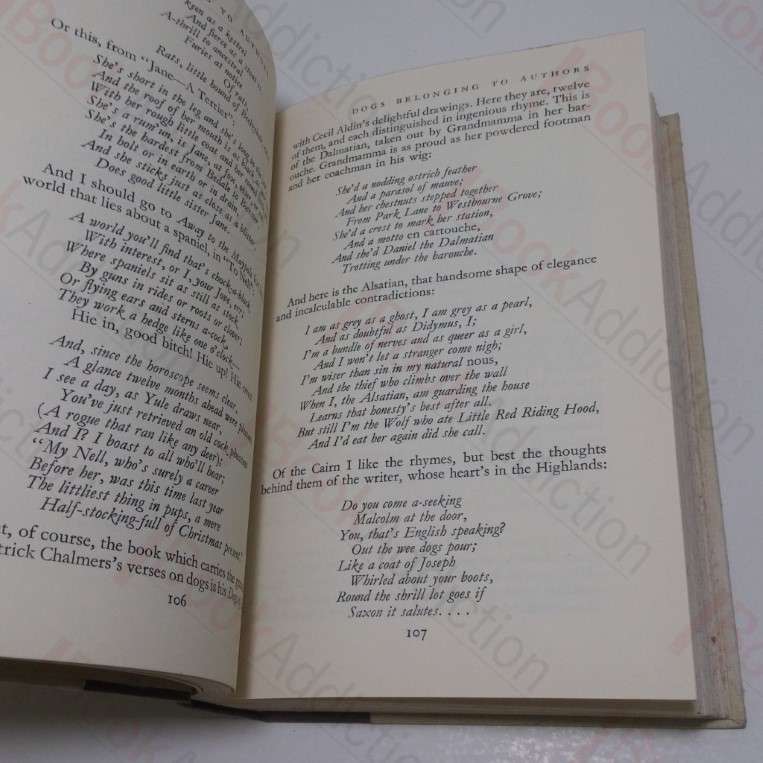 TO AUTHORS
keen as a kestrel
And fierce as a
A-thrill to ancestral
Furies at notice
Of rats,
Rats, little hound of
Or this, from "Jane—A Terrier":
She's short in the leg and she's long in the
And the roof of her mouth is as black as
With her rough little coat and
She's a rum 'un, is Jane,
She's the hardest from Tweedale to
In holt or in earth or in drain,
And she sticks just as close as a blister,
Does good little sister Jane.
And I should go to Away to the Maypole for
world that lies about a spaniel, in "To Nell":
A world you'll find that's chock-a-block
With interest, or I, your Jove, err;
Where spaniels sit as still as stock
By guns in rides or roots or clover;
Or flying ears and sterns a-cock
They work a hedge like one o'clock—
Hie in, good bitch! Hie up! Hie over!
And, since the horoscope seems clear,
A glance twelve months ahead were pleasant
I see a day, as Yule draws near,
You've just retrieved an old cock pheasant
(A rogue that ran like any deer);
And I? I boast to all who'll hear;
"My Nell, who's surely a carver
Before her, was this time last year
The littliest thing in pups, a mere
Half-stocking-full of Christmas present."
But, of course, the book which carries the
Patrick Chalmers's verses on dogs is his Dogs
106
DOGS BELONGING TO AUTHORS
with Cecil Aldin's delightful drawings. Here they are, twelve
of them, and each distinguished in ingenious rhyme. This is
of the Dalmatian, taken out by Grandmamma in her bar-
ouche. Grandmamma is as proud as her powdered footman
and her coachman in his wig:
She'd a nodding ostrich feather
And a parasol of mauve;
And her chestnuts stepped together
From Park Lane to Westbourne Grove;
She'd a crest to mark her station,
And a motto en cartouche,
And she'd Daniel the Dalmatian
Trotting under the barouche.
And here is the Alsatian, that handsome shape of elegance
and incalculable contradictions:
I am as grey as a ghost, I am grey as a pearl,
And as doubtful as Didymus, I;
I'm a bundle of nerves and as queer as a girl,
And I won't let a stranger come nigh;
I'm wiser than sin in my natural nous,
And the thief who climbs over the wall
When I, the Alsatian, am guarding the house
Learns that honesty's best after all.
But still I'm the Wolf who ate Little Red Riding Hood,
And I'd eat her again did she call.
Of the Cairn I like the rhymes, but best the thoughts
behind them of the writer, whose heart's in the Highlands:
Do you come a-seeking
Malcolm at the door,
You, that's English speaking?
Out the wee dogs pour;
Like a coat of Joseph
Whirled about your boots,
Round the shrill lot goes if
Saxon it salutes. . . .
107